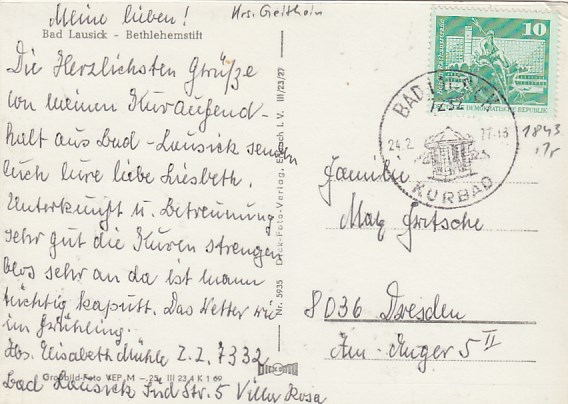 Meine lieben!
Krs. Geithain
Bad Lausick - Bethlehemstift
Die Herzlichsten Grüße
von meinen Kuraufend-
halt aus Bad-Lausick senden
Euch Eure liebe Liesbeth.
Unterkunft u. Betreunung
sehr gut die Kuren strengen
blos sehr an da ist mann
tüchtig kaputt. Das Wetter wie
im Frühling.
Abs. Elisabeth Mühle Z. Z. 7332
Bad Lausick Süd Str. 5 Villa Rosa
Großbild-Foto VEP M - 25 III 23 4 K 1 69
Nr. 5935 Dick-Foto-Verlag, I.V. III/23/27
DICK-FOTO
10
DEMOKRATISCHE REPUBLIK
BAD LAUSICK
7232
24.2. 77-18
KURBAD
1843
Familie
Max Fritsche
8036 Dresden
Am-Anger 5 II